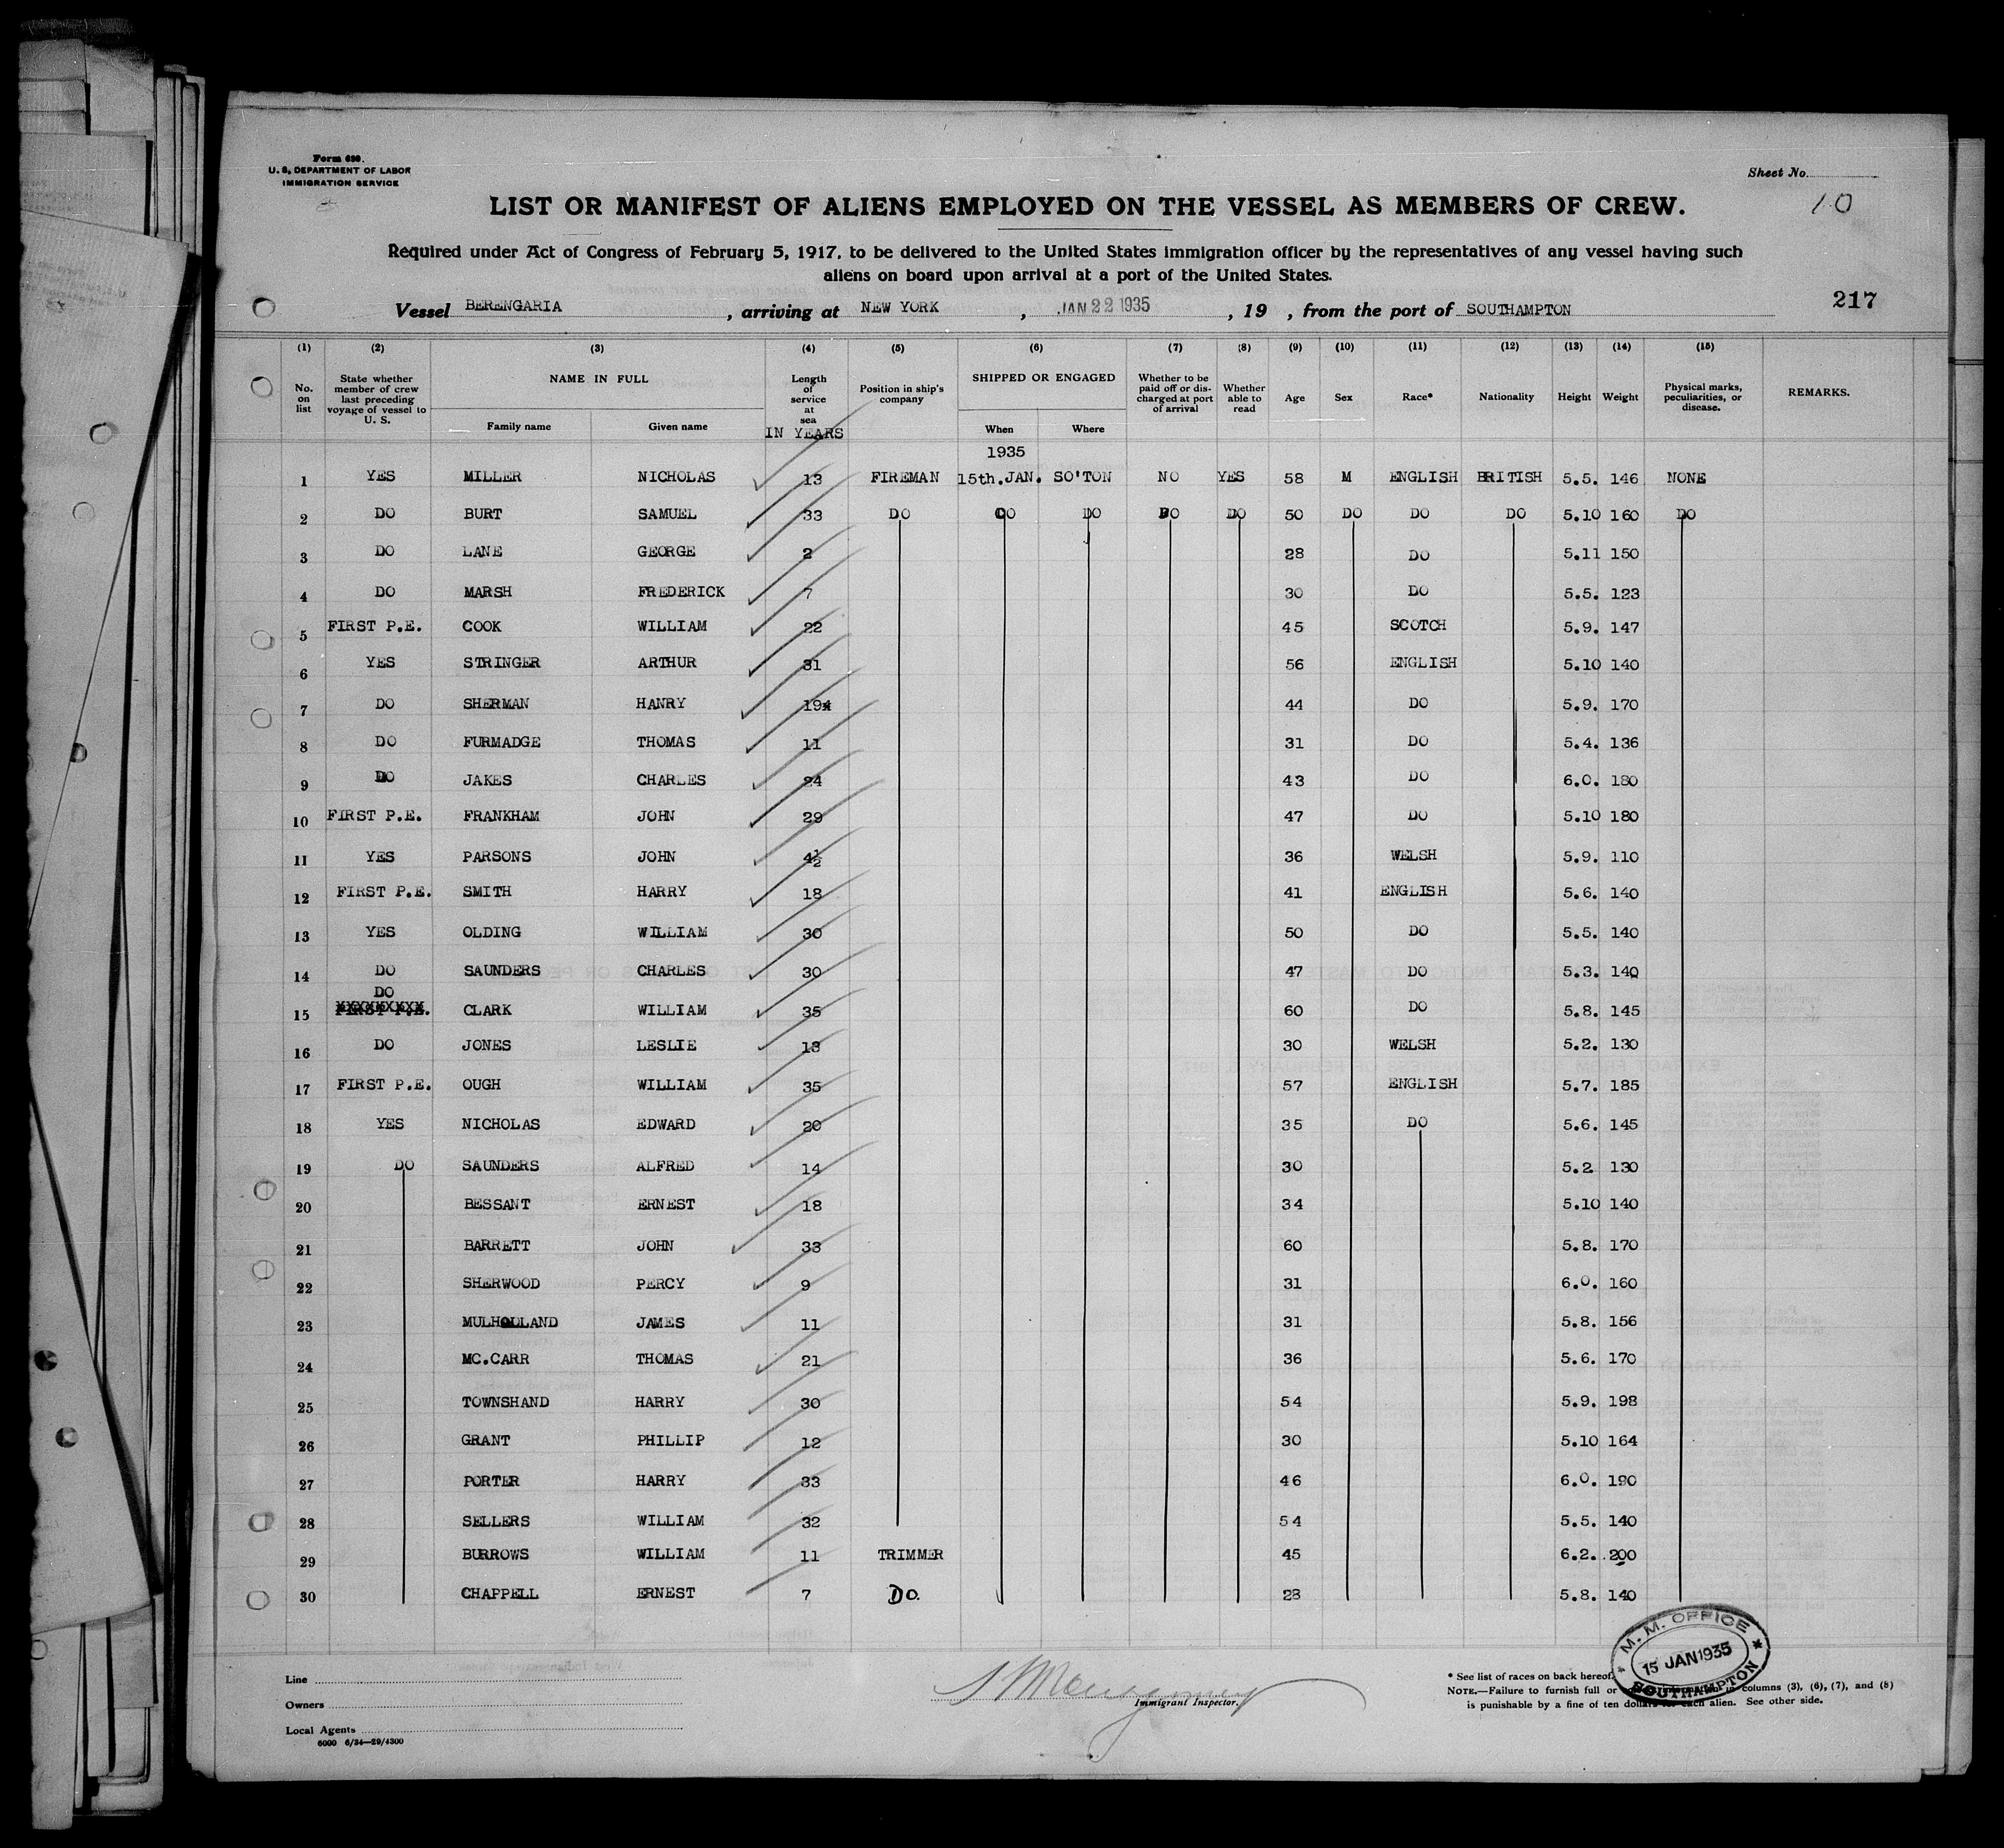 Form 630.
U. S. DEPARTMENT OF LABOR
IMMIGRATION SERVICE
Sheet No.
10
LIST OR MANIFEST OF ALIENS EMPLOYED ON THE VESSEL AS MEMBERS OF CREW.
Required under Act of Congress of February 5, 1917, to be delivered to the United States immigration officer by the representatives of any vessel having such
aliens on board upon arrival at a port of the United States.
Vessel BERENGARIA, arriving at NEW YORK, JAN 22 1935, 19 , from the port of SOUTHAMPTON
217
(1) (2) (3) (4) (5) (6) (7) (8) (9) (10) (11) (12) (13) (14) (15)
No. on list
State whether member of crew last preceding voyage of vessel to U. S.
NAME IN FULL
Family name Given name
Length of service at sea
IN YEARS
Position in ship's company
SHIPPED OR ENGAGED
When Where
Whether to be paid off or discharged at port of arrival
Whether able to read
Age
Sex
Race*
Nationality
Height
Weight
Physical marks, peculiarities, or disease.
REMARKS.
1935
1 YES MILLER NICHOLAS 13 FIREMAN 15th.JAN. SO'TON NO YES 58 M ENGLISH BRITISH 5.5. 146 NONE
2 DO BURT SAMUEL 33 DO DO DO DO DO 50 DO DO DO 5.10 160 DO
3 DO LANE GEORGE 2 28 DO 5.11 150
4 DO MARSH FREDERICK 7 30 DO 5.5. 123
5 FIRST P.E. COOK WILLIAM 22 45 SCOTCH 5.9. 147
6 YES STRINGER ARTHUR 31 56 ENGLISH 5.10 140
7 DO SHERMAN HANRY 19 44 DO 5.9. 170
8 DO FURMADGE THOMAS 11 31 DO 5.4. 136
9 DO JAKES CHARLES 24 43 DO 6.0. 180
10 FIRST P.E. FRANKHAM JOHN 29 47 DO 5.10 180
11 YES PARSONS JOHN 4½ 36 WELSH 5.9. 110
12 FIRST P.E. SMITH HARRY 18 41 ENGLISH 5.6. 140
13 YES OLDING WILLIAM 30 50 DO 5.5. 140
14 DO SAUNDERS CHARLES 30 47 DO 5.3. 140
DO
15 FIRST P.E. CLARK WILLIAM 35 60 DO 5.8. 145
16 DO JONES LESLIE 13 30 WELSH 5.2. 130
17 FIRST P.E. OUGH WILLIAM 35 57 ENGLISH 5.7. 185
18 YES NICHOLAS EDWARD 20 35 DO 5.6. 145
19 DO SAUNDERS ALFRED 14 30 5.2 130
20 BESSANT ERNEST 18 34 5.10 140
21 BARRETT JOHN 33 60 5.8. 170
22 SHERWOOD PERCY 9 31 6.0. 160
23 MULHOLLAND JAMES 11 31 5.8. 156
24 MC.CARR THOMAS 21 36 5.6. 170
25 TOWNSHAND HARRY 30 54 5.9. 198
26 GRANT PHILLIP 12 30 5.10 164
27 PORTER HARRY 33 46 6.0. 190
28 SELLERS WILLIAM 32 54 5.5. 140
29 BURROWS WILLIAM 11 TRIMMER 45 6.2. 200
30 CHAPPELL ERNEST 7 DO. 28 5.8. 140
Line
Owners
Local Agents
6000 6/34—29/4300
Immigrant Inspector.
* See list of races on back hereof.
NOTE.—Failure to furnish full or columns (3), (6), (7), and (8)
is punishable by a fine of ten dollars for each alien. See other side.
M. M. OFFICE
15 JAN 1935
SOUTHAMPTON